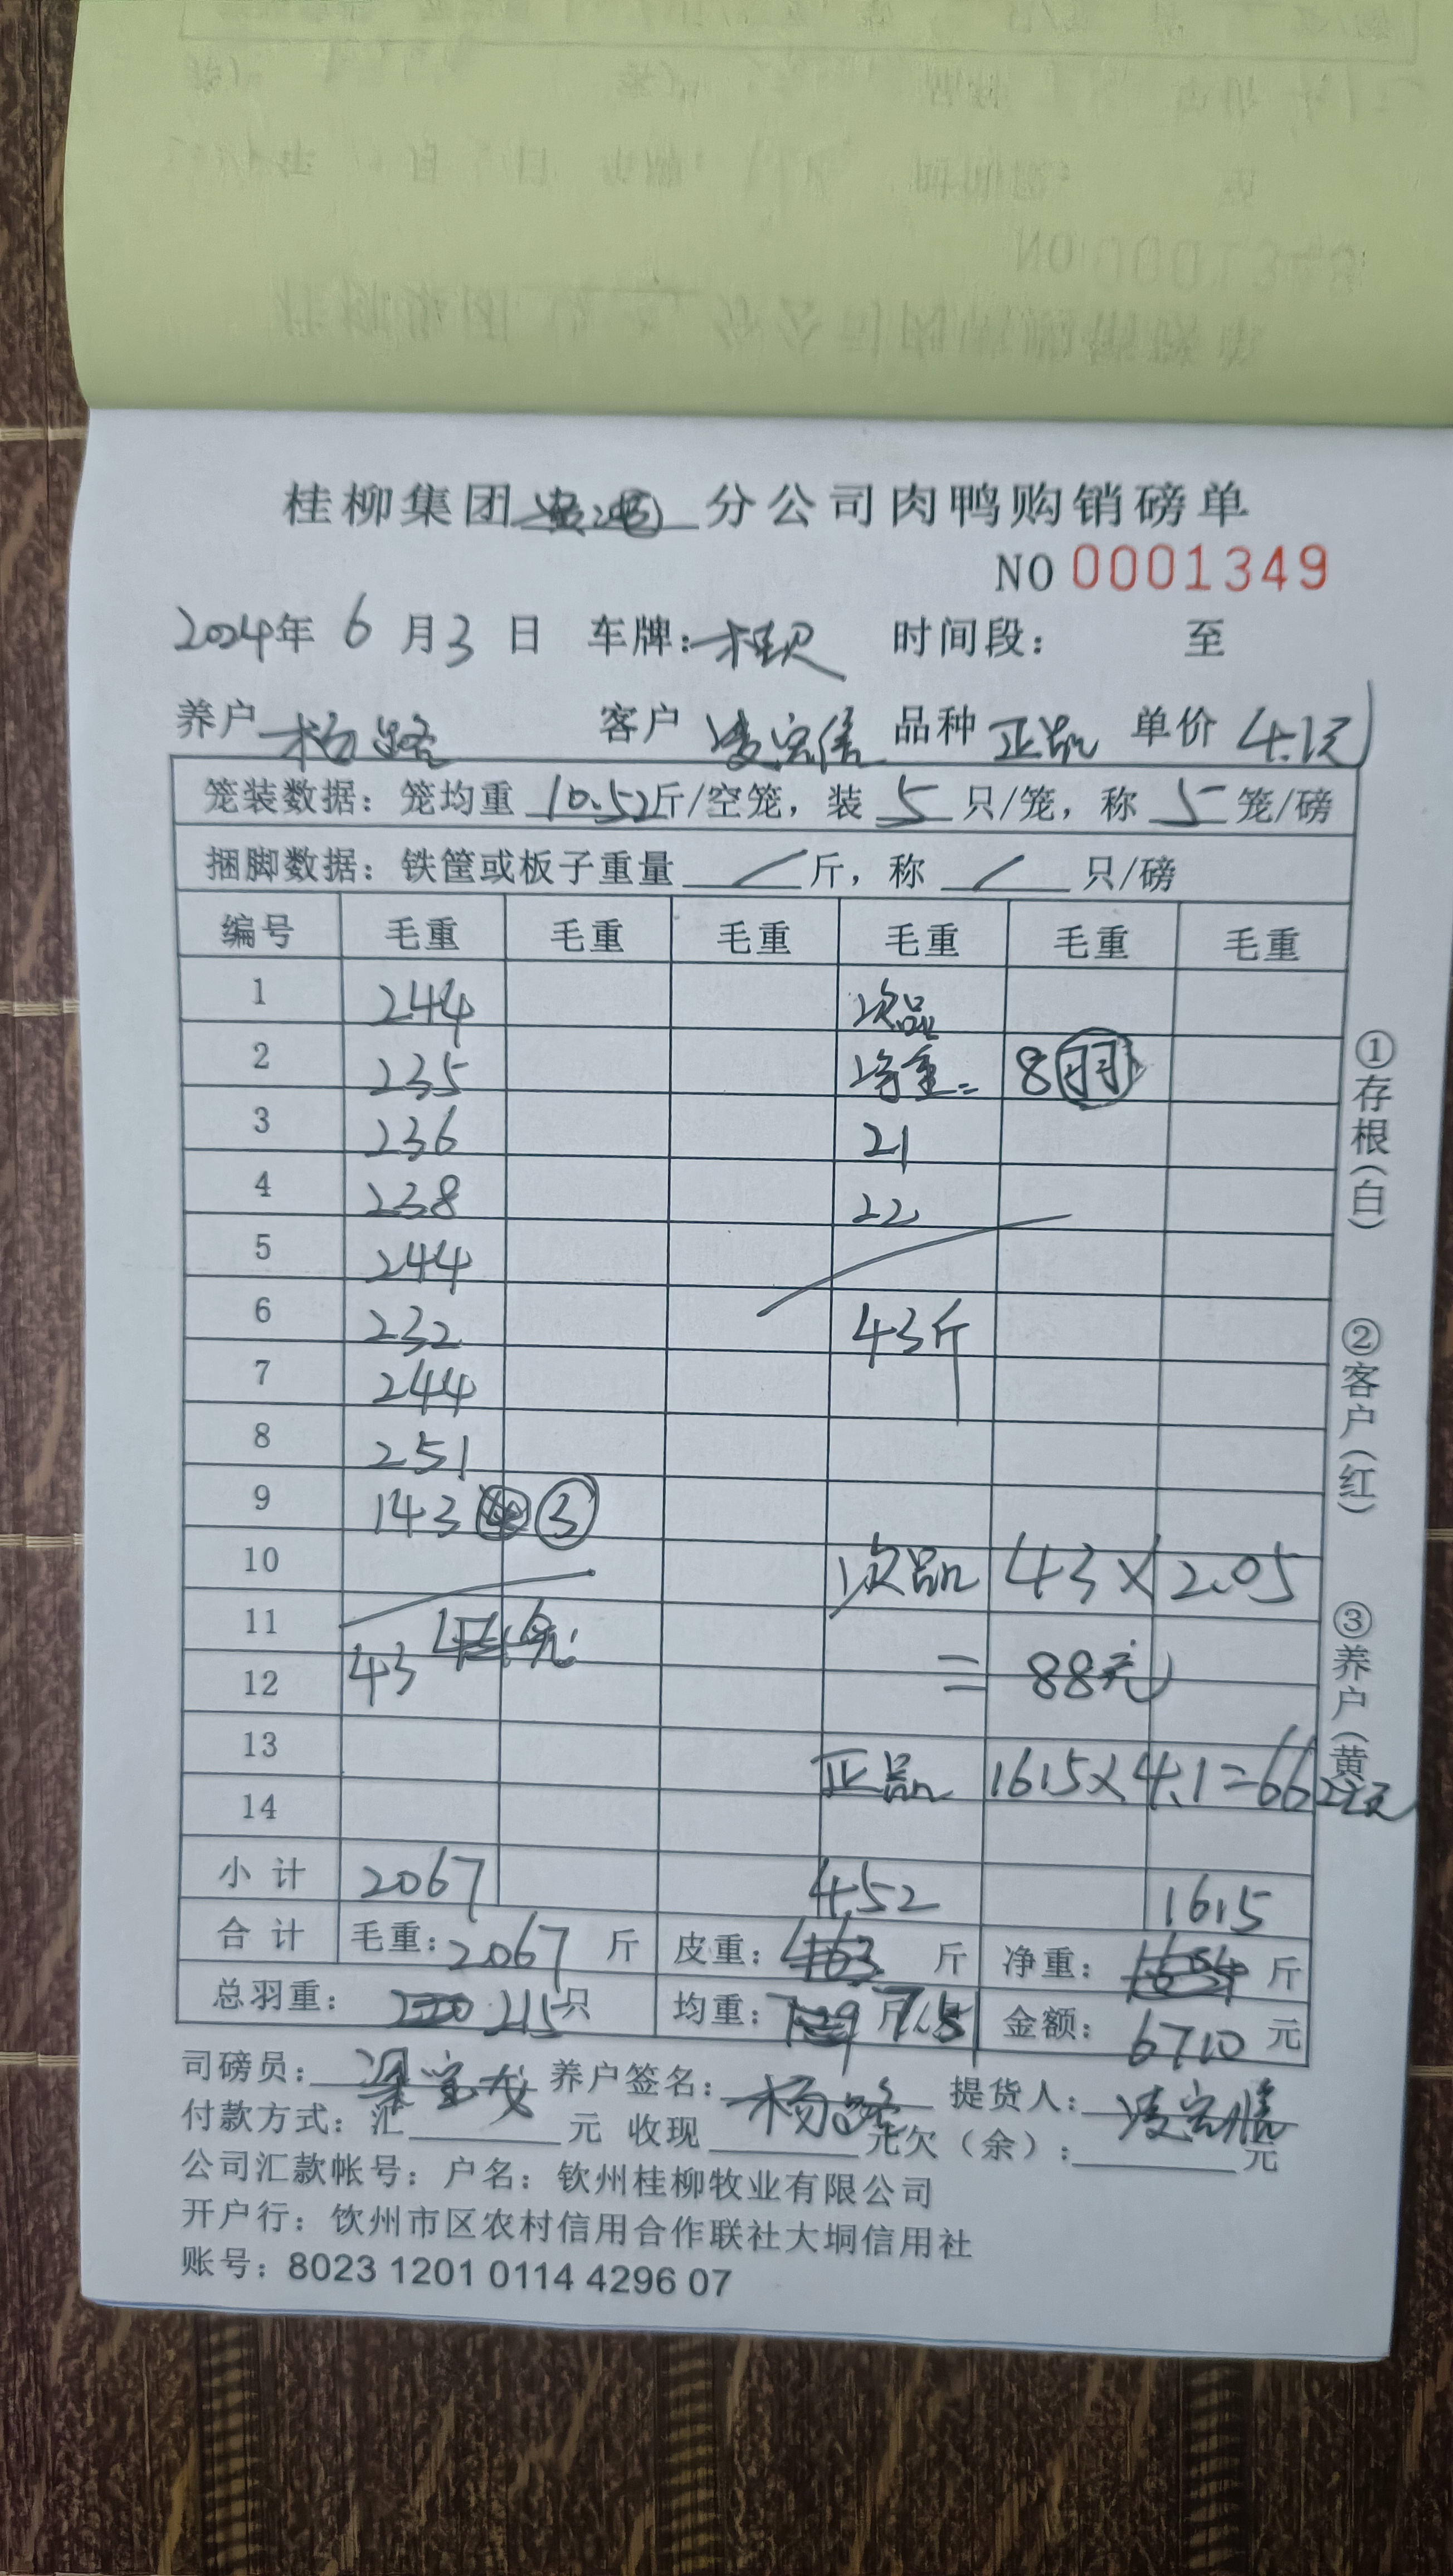 桂柳集团 分公司肉鸭购销磅单
NO 0001349
2024年 6 月 3 日 车牌: 时间段: 至
养户 杨路 客户 凌宏信 品种 正品 单价 4.1元
笼装数据: 笼均重 10.52斤/空笼, 装 5 只/笼, 称 5 笼/磅
捆脚数据: 铁筐或板子重量 / 斤, 称 / 只/磅
编号 毛重 毛重 毛重 毛重 毛重 毛重
1 244 次品
2 235 净重= 8羽
3 236 21
4 238 22
5 244
6 232 43斤
7 244
8 251
9 143 ③
10 次品 43×2.05
11
12 43 =88元
13 正品 1615×4.1=6622元
14
小计 2067 452 1615
合计 毛重: 2067 斤 皮重: 463 斤 净重: 1604 斤
总羽重: 215只 均重: 7.29 斤 7.5 金额: 6710 元
司磅员: 养户签名: 杨路 提货人: 凌宏信
付款方式: 汇 元 收现 元 欠(余): 元
公司汇款帐号: 户名: 钦州桂柳牧业有限公司
开户行: 钦州市区农村信用合作联社大垌信用社
账号: 8023 1201 0114 4296 07
①存根(白)
②客户(红)
③养户(黄)